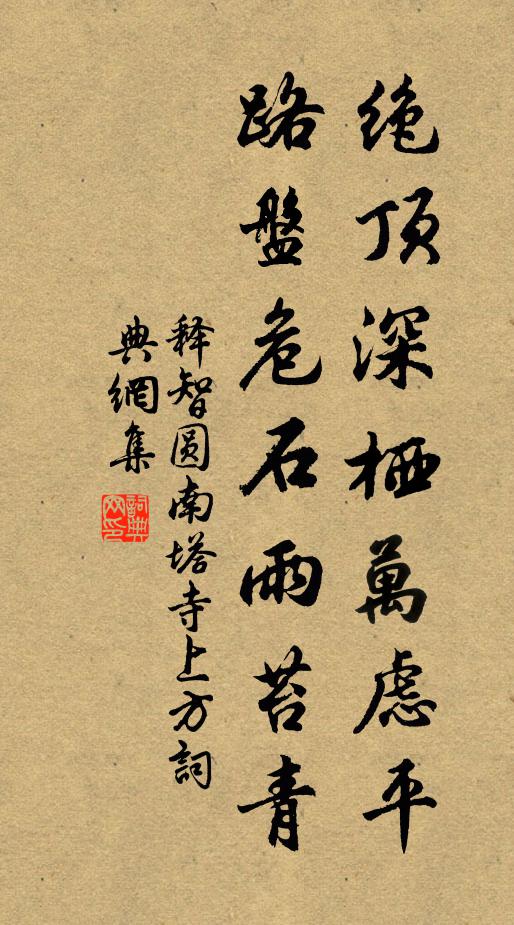 绝顶深栖萬慮平
路盤危石雨苔青
释智圆南塔寺上方詞
典網集
詞典
网印